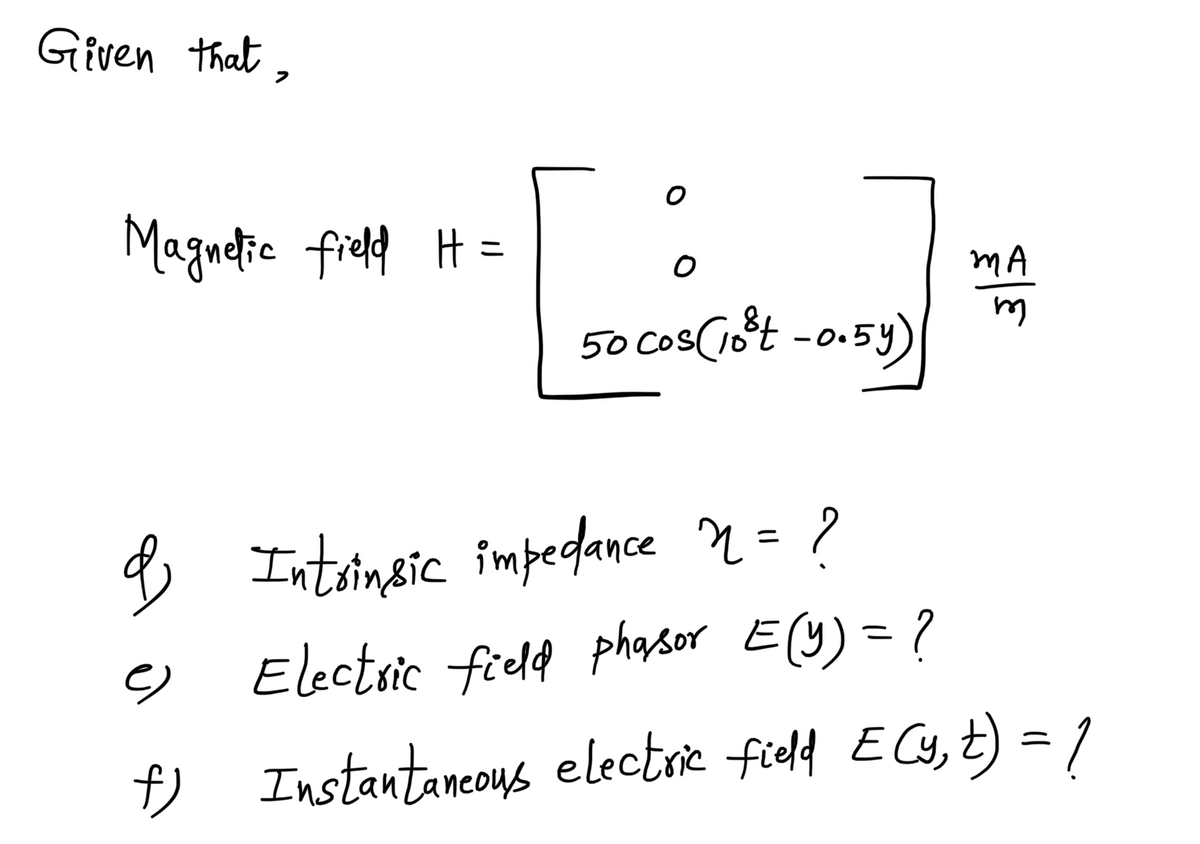 Given that,
0
Magnetic field H = 0 mA/m
50 cos(10⁸t - 0.5y)
d) Intrinsic impedance η = ?
e) Electric field phasor E(y) = ?
f) Instantaneous electric field E(y, t) = ?